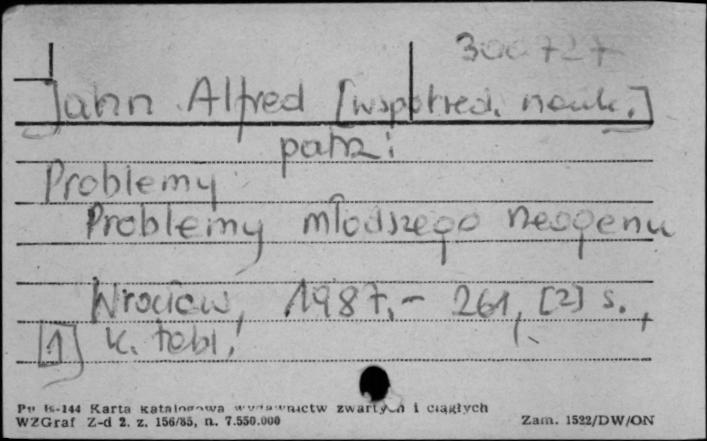 300727
Jahn Alfred [współred. nauk.]
patrz:
Problemy
Problemy młodszego neogenu
Wrocław, 1987.- 261, [2] s.,
[1] k. tabl.
Pu K-144 Karta katalogowa wydawnictw zwartych i ciągłych
WZGraf Z-d 2. z. 156/85, n. 7.550.000 Zam. 1522/DW/ON